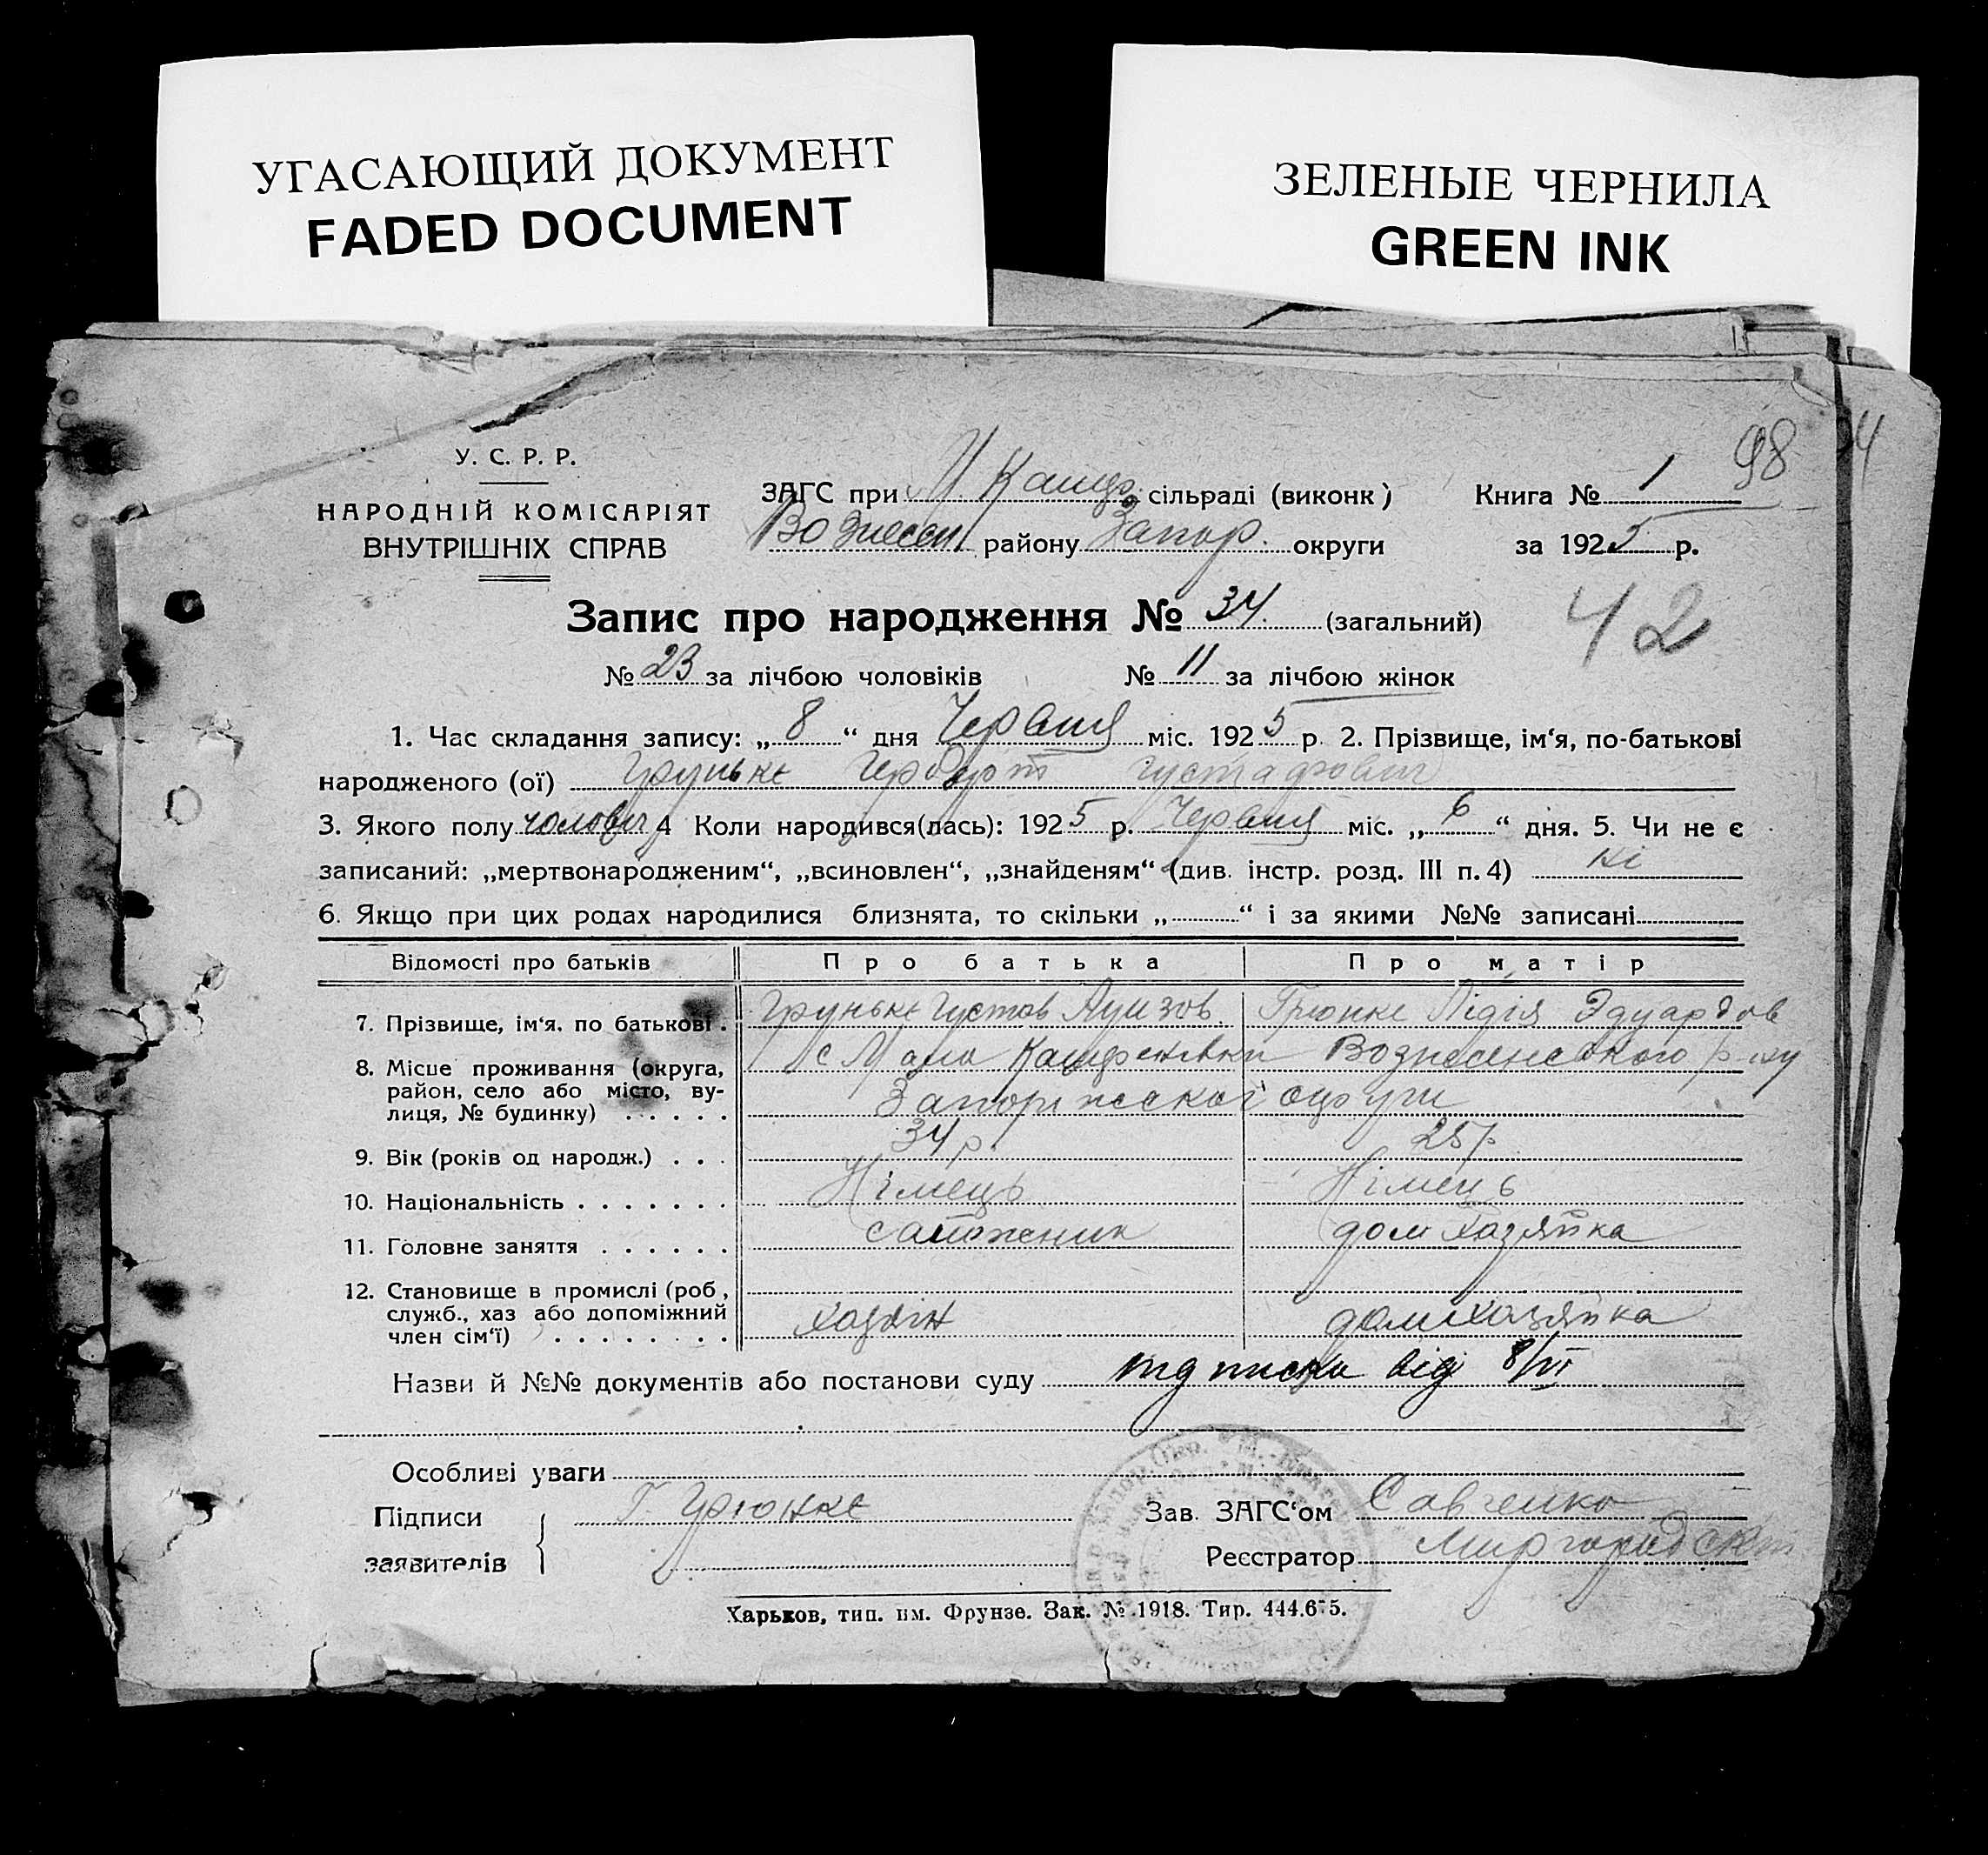 УГАСАЮЩИЙ ДОКУМЕНТ
FADED DOCUMENT
ЗЕЛЕНЫЕ ЧЕРНИЛА
GREEN INK
98
У. С. Р. Р.
НАРОДНІЙ КОМІСАРІЯТ
ВНУТРІШНІХ СПРАВ
ЗАГС при сільраді (виконк)
Вознесен району Запор. округи
Книга № 1
за 1925 р.
Запис про народження № 34. (загальний)
42
№ 23 за лічбою чоловіків № 11 за лічбою жінок
1. Час складання запису: „ 8 “ дня Червня міс. 1925 р. 2. Прізвище, ім‘я, по-батькові
народженого (ої) Груньке Герберт Густафович
3. Якого полу чоловіч 4 Коли народився(лась): 1925 р. Червня міс. „ 6 “ дня. 5. Чи не є
записаний: „мертвонародженим“, „всиновлен“, „знайденям“ (див. інстр. розд. III п. 4) ні
6. Якщо при цих родах народилися близнята, то скільки „ “ і за якими №№ записані
Відомості про батьків Про батька Про матір
7. Прізвище, ім‘я. по батькові . Груньке Густов Грюнке Лідія Эдуардов
8. Місце проживання (округа, район, село або місто, вулиця, № будинку) с Мала Вознесенського р-ну
Запоріжської округи
9. Вік (років од народж.) . . . 34 р. 25 р.
10. Національність . . . . . . . Німець Німець
11. Головне заняття . . . . . . сапожник дом хазяйка
12. Становище в промислі (роб, служб., хаз або допоміжний член сім‘ї) . . . . . . . . хазяін дом хазяйка
Назви й №№ документів або постанови суду підписка від 8/VI
Особливі уваги
Підписи Г. Грюнке Зав. ЗАГС‘ом Савченко
заявителів Реєстратор
Харьков, тип. им. Фрунзе. Зак. № 1918. Тир. 444.675.